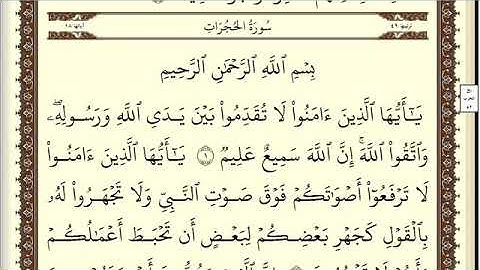 ترتيبها ٤٩ سُورَةُ الحُجُرَاتِ آياتها ١٨
بِسْمِ ٱللَّهِ ٱلرَّحْمَٰنِ ٱلرَّحِيمِ
يَٰٓأَيُّهَا ٱلَّذِينَ ءَامَنُوا۟ لَا تُقَدِّمُوا۟ بَيْنَ يَدَىِ ٱللَّهِ وَرَسُولِهِۦۖ
وَٱتَّقُوا۟ ٱللَّهَۚ إِنَّ ٱللَّهَ سَمِيعٌ عَلِيمٌ ١ يَٰٓأَيُّهَا ٱلَّذِينَ ءَامَنُوا۟
لَا تَرْفَعُوٓا۟ أَصْوَٰتَكُمْ فَوْقَ صَوْتِ ٱلنَّبِىِّ وَلَا تَجْهَرُوا۟ لَهُۥ
بِٱلْقَوْلِ كَجَهْرِ بَعْضِكُمْ لِبَعْضٍ أَن تَحْبَطَ أَعْمَٰلُكُمْ